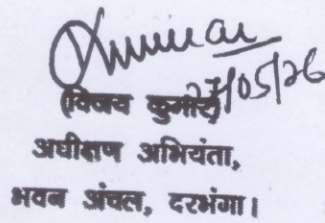 27/05/26
(विजय कुमार)
अधीक्षण अभियंता,
भवन अंचल, दरभंगा।